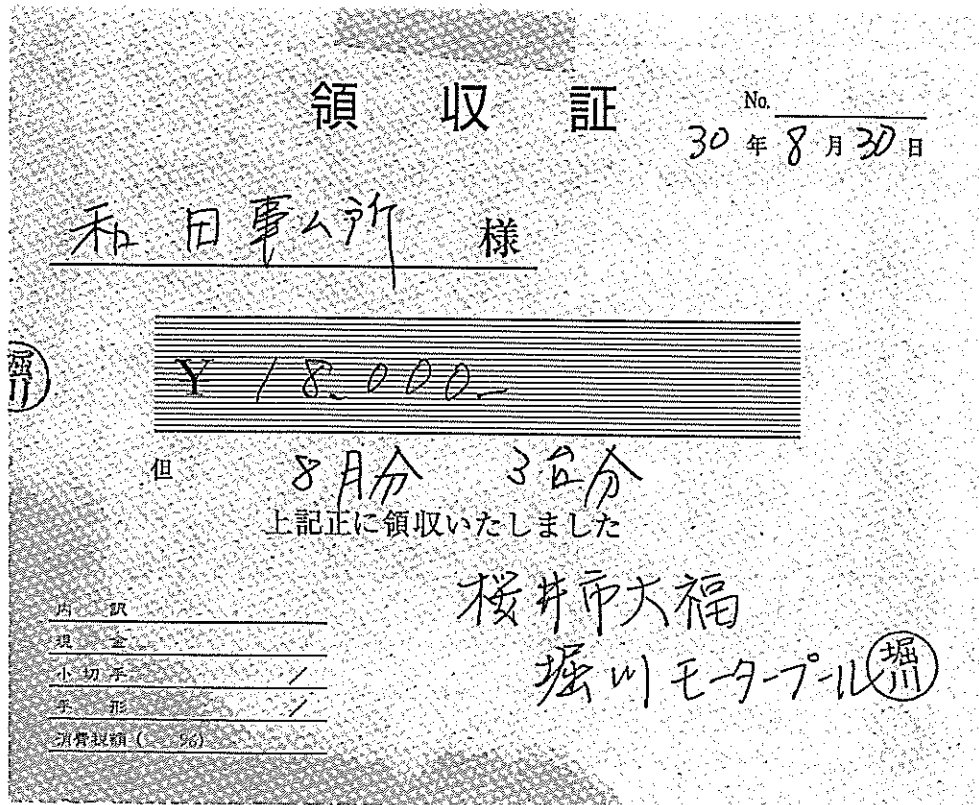 領収証
No.
30年8月30日
和田事ム所 様
¥18,000-
但 8月分 3台分
上記正に領収いたしました
桜井市大福
堀川モータープール
堀川
堀川
内訳
現金
小切手 /
手形 /
消費税額( %)